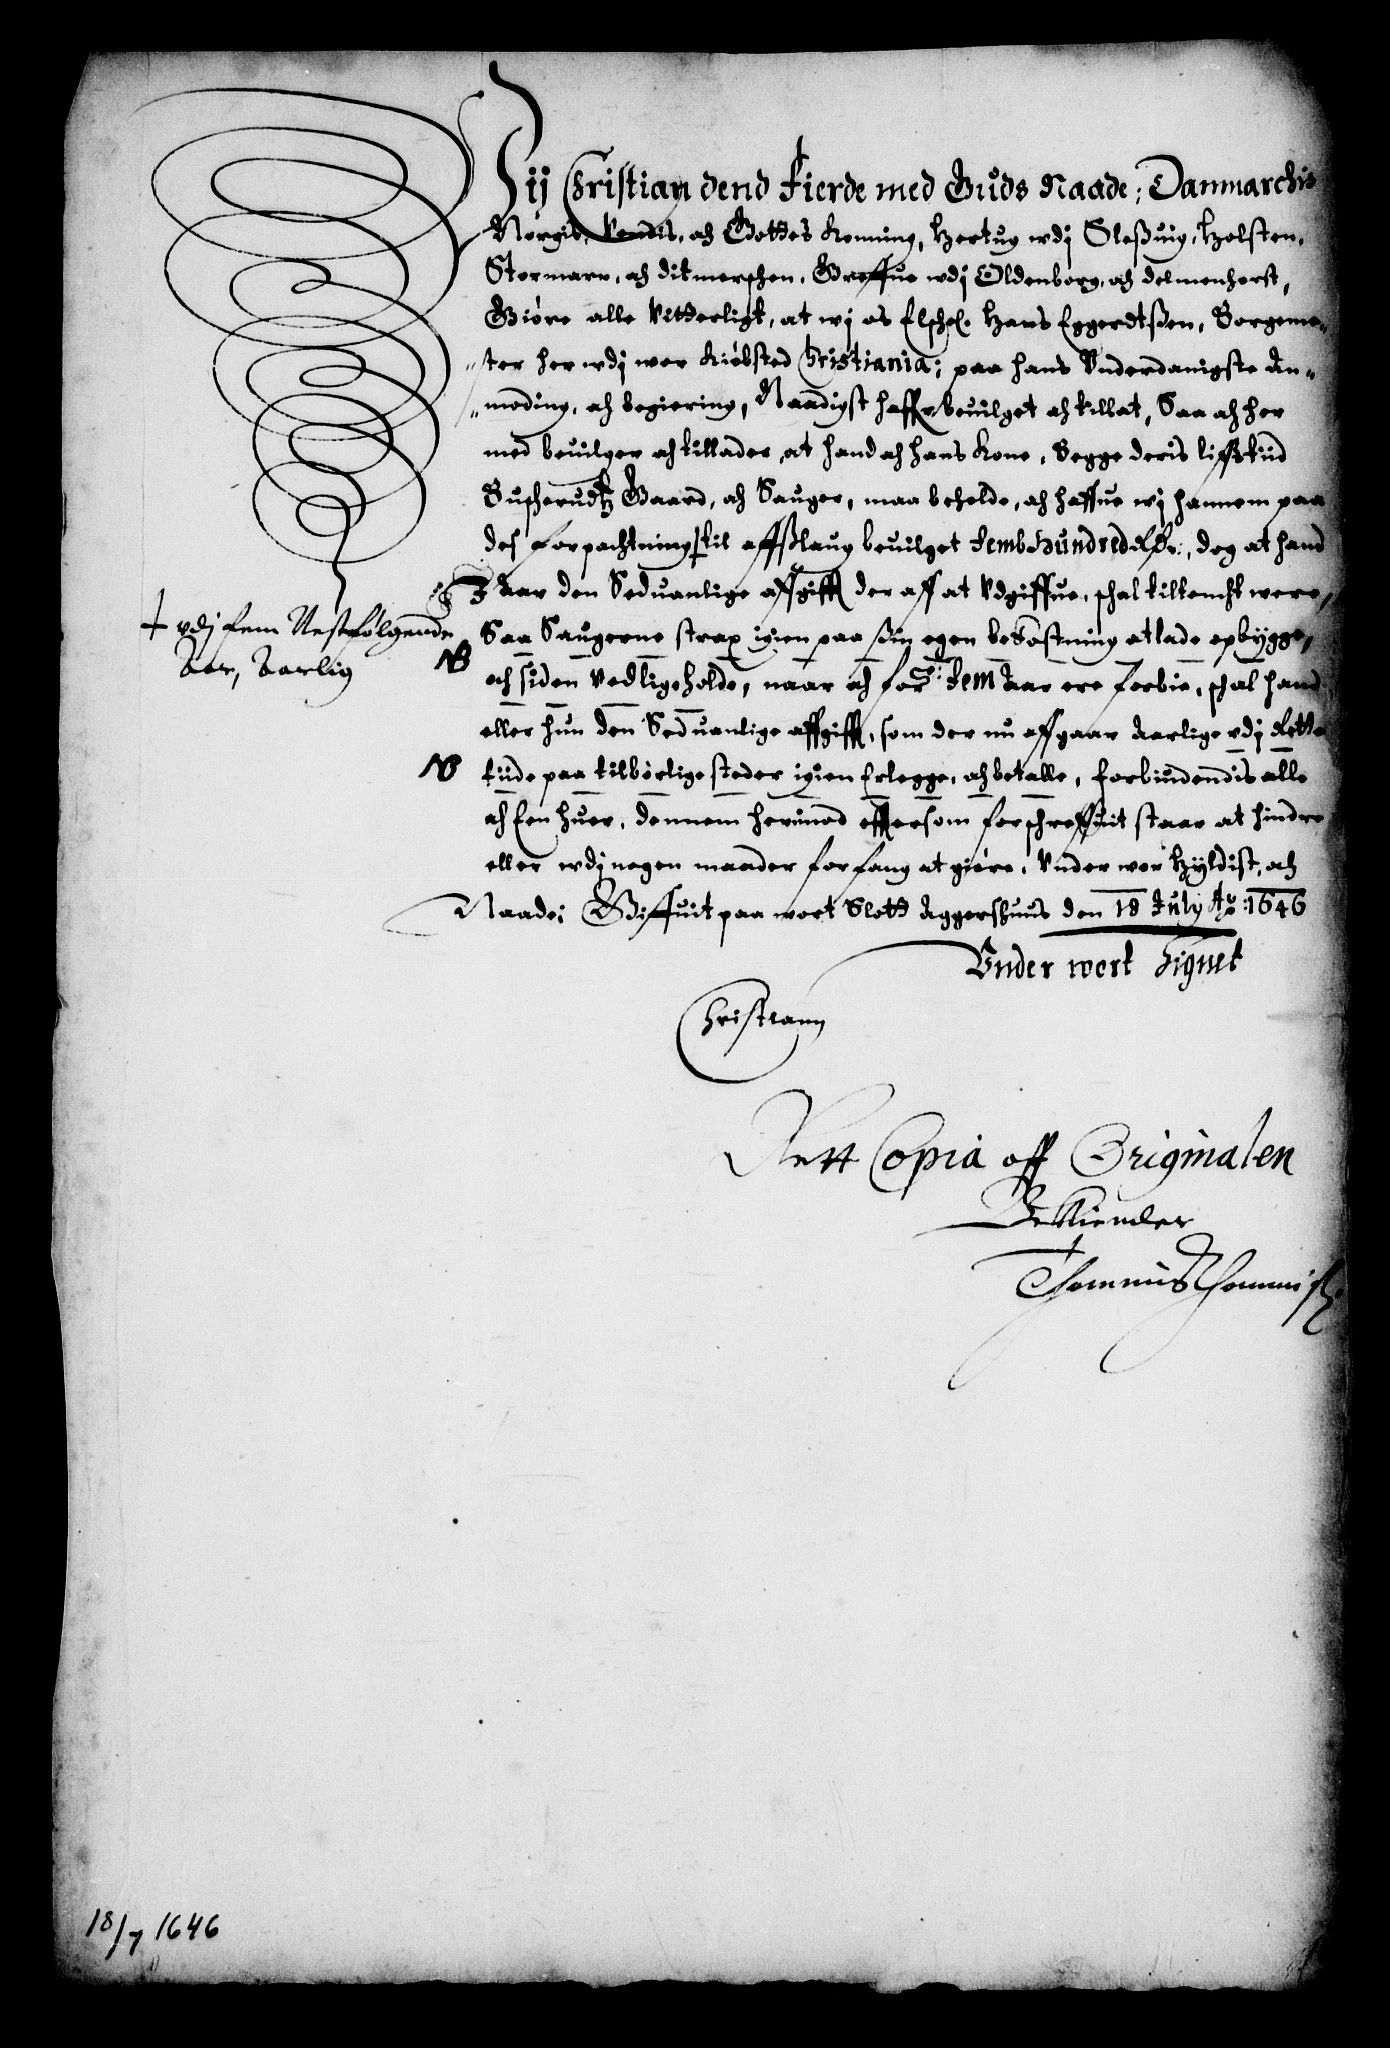 Wij Christian dend Fierde med Guds Naade; Danmarchis
Norgis, Vendis, och Gottes Konning, Hertug wdj Sleßuig, Holsten,
Stormarn, och ditmerschen, Greffue wdj Oldenborg, och delmenhorst,
Giöre alle Vitterligt, at wj os Elschel. Hans Eggerdtßen, Borgeme„
„ter her wdj wor Kiöbsted Christiania; paa hans Vnderdanigste An„
„moding, och begiering, Naadigst haffr beuilget och tillat, Saa och her
med beuilger och tillader at hand och hans Kone, Begge deris liffstiid
Buskerudtz Gaard, och Sauger, maa beholde, och haffue wj hannem paa
des forpachtning + til affßlaug beuilget Femb Hundred Rdr:, dog at hand
I Aar den Seduanlige affgifft der aff at Vdgiffue, schal tiltencht were,
+ vdj fem Nestfølgende
Aar, Aarlig
Saa Saugerne strax igien paa sin egen bekostning at lade opbygge,
NB
och siden Vedligeholde, naar och for: Fem Aar ere forbie, schal hand
eller hun den Seduanlige affgifft, som der nu affgaar Aarlige vdj Rette
NB tiide paa tilbörlige steder igien Erlegge, och betalle, forbiudendis alle
och Een huer, dennem herimod effter som forschreffuit staar at hindre
eller wdj nogen maader forfang at giöre, Vnder wor Hyldist, och
Naade; Giffuit paa wort Slott Aggershuus den 18 July Ao: 1646
Vnder wort Signet
Christiann
Rett Copia aff Originalen
Bekiender
18/7 1646